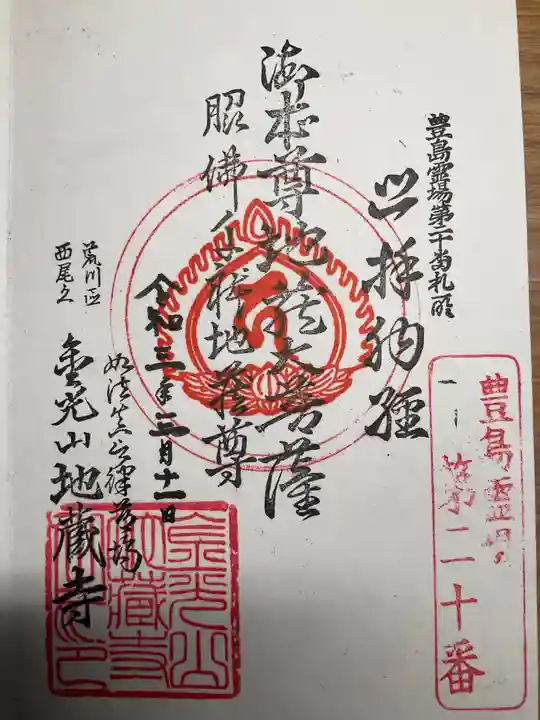 豊島霊場第二十番札所
豊島霊場
第二十番
奉拝納経
御本尊地蔵大菩薩
地蔵尊
令和三年三月十一日
荒川区
西尾久
如法真言律道場
金光山地蔵寺
金光山
地蔵寺